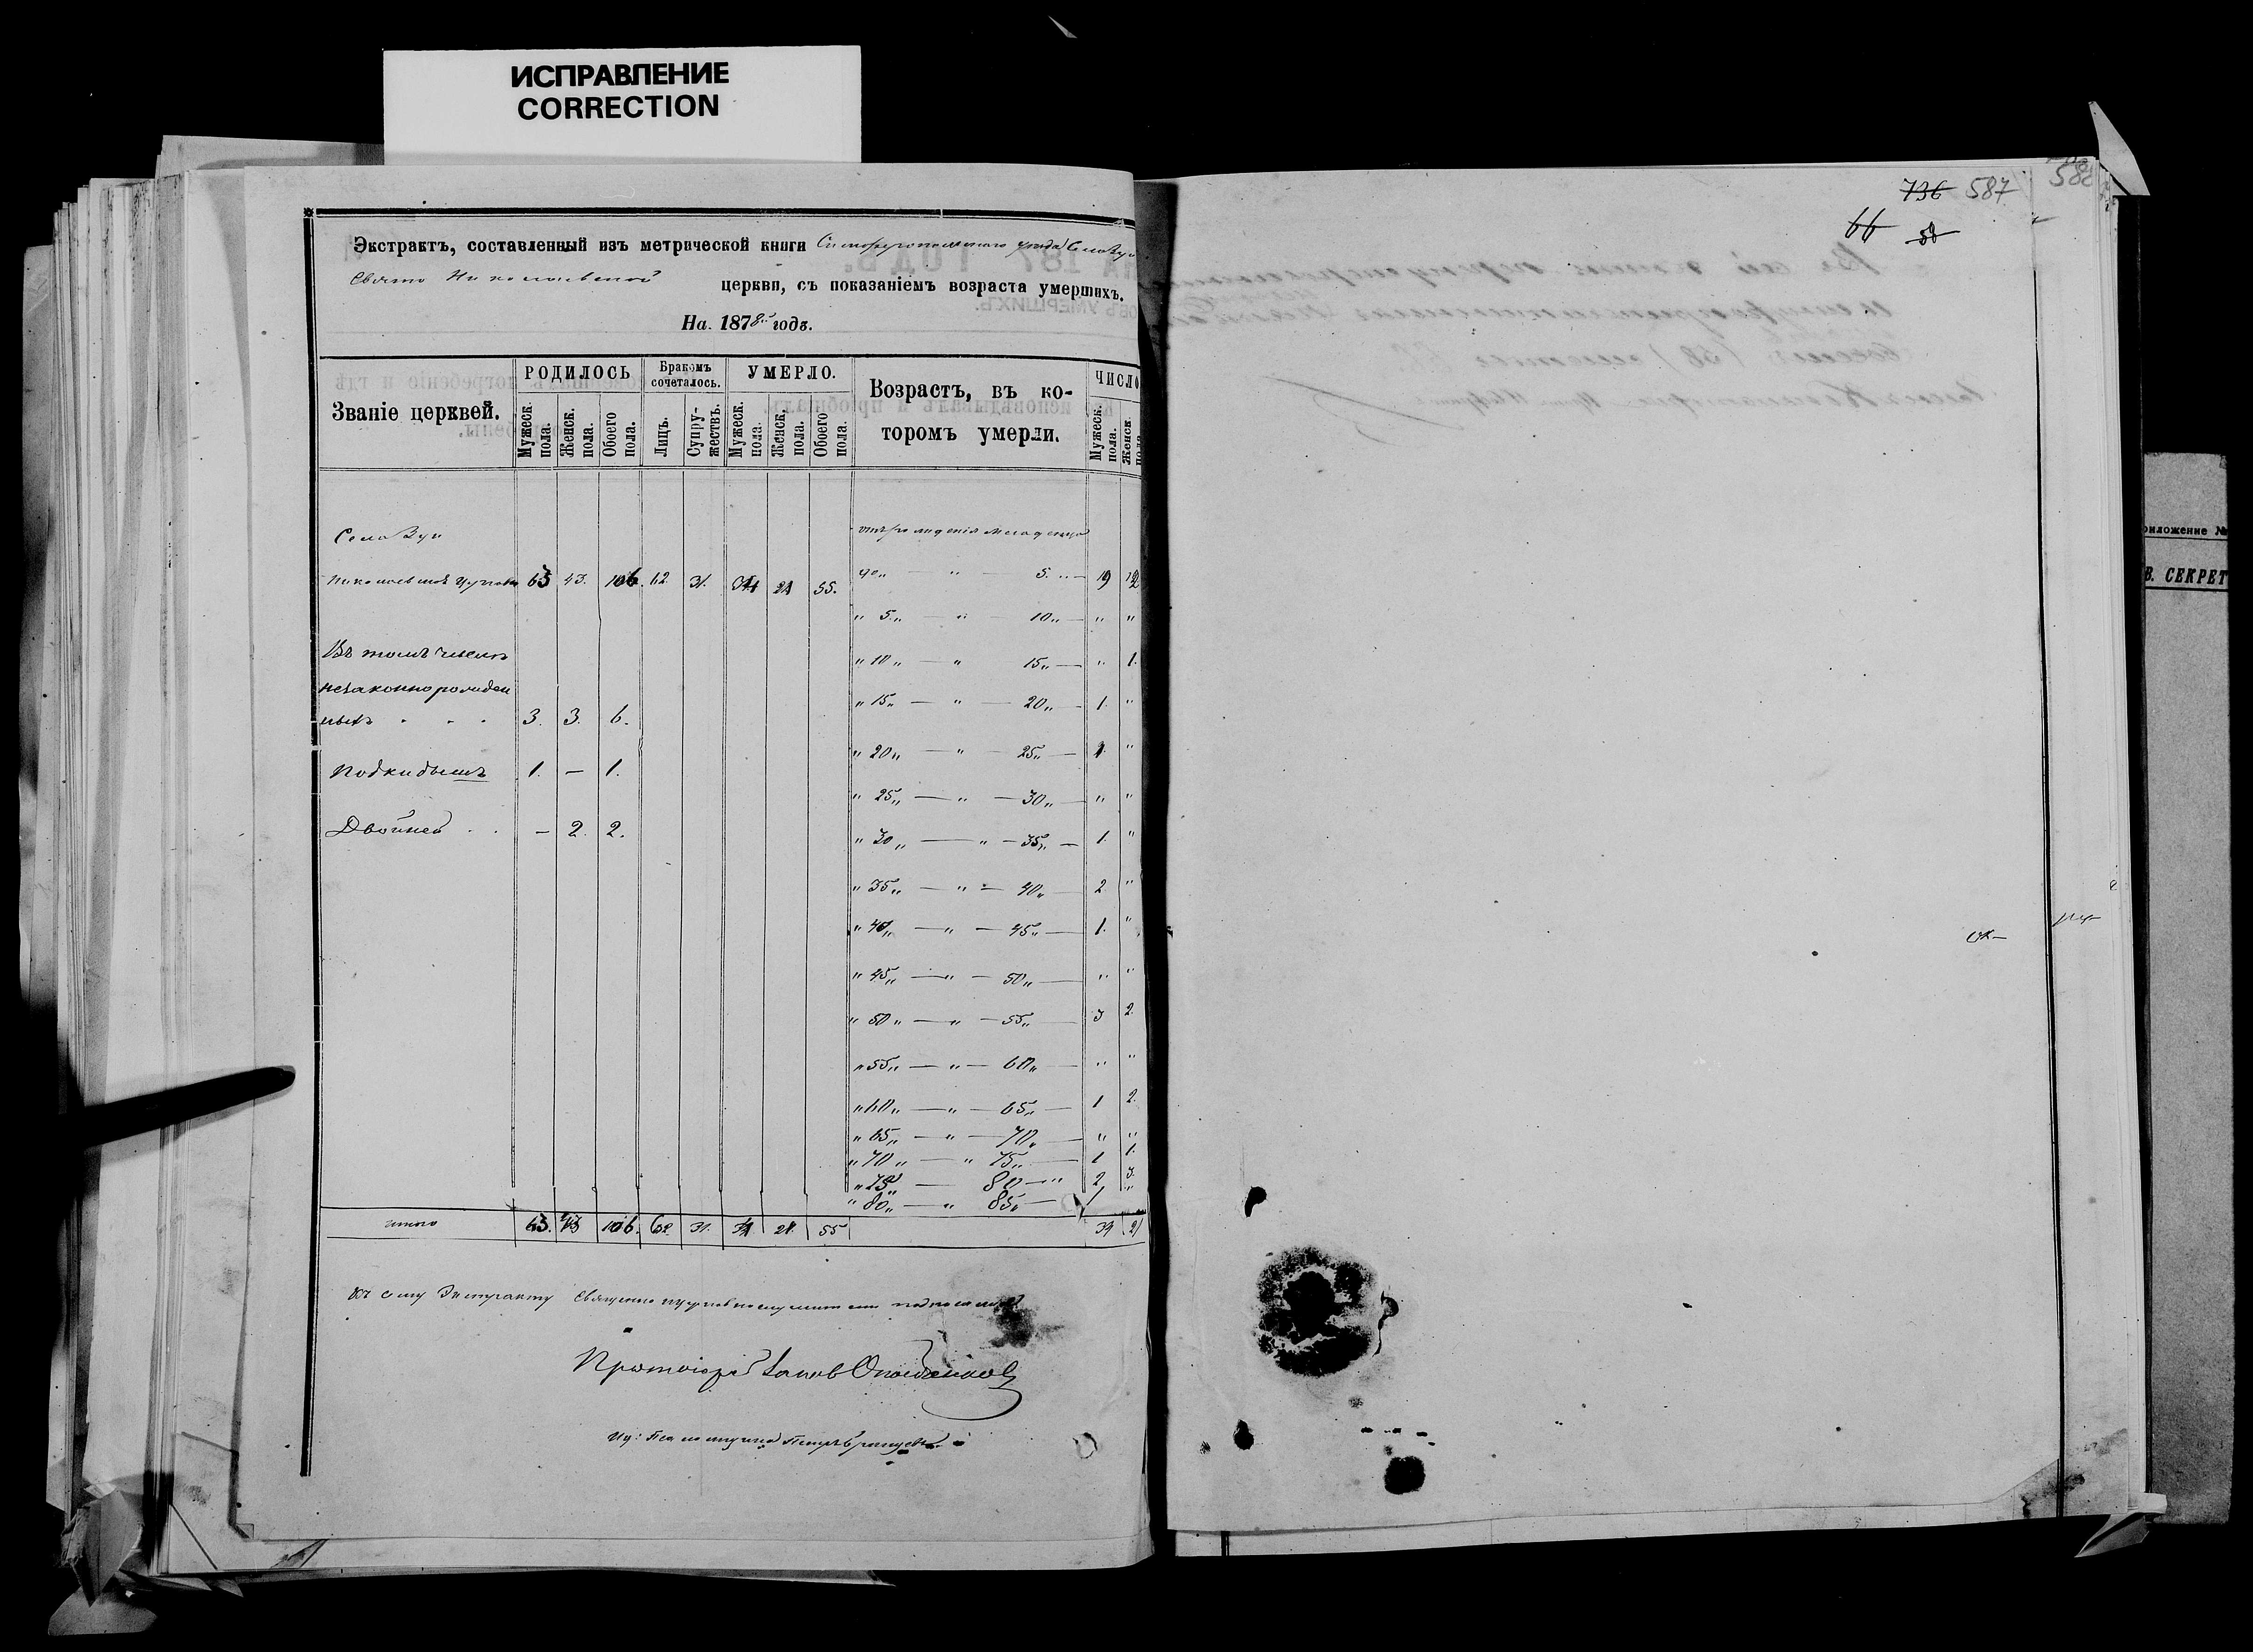 ИСПРАВЛЕНИЕ
CORRECTION
Экстрактъ, составленный изъ метрической книги Симферопольскаго уѣзда Села Зуи
Свято Николаевской церкви, съ показаніемъ возраста умершихъ.
На 1878й годъ.
Званіе церквей. РОДИЛОСЬ Бракомъ сочеталось. УМЕРЛО. Возрастъ, въ ко- ЧИСЛО
торомъ умерли.
Мужеск. пола. Женск. пола. Обоего пола. Лицъ. Супру- жествъ. Мужеск. пола. Женск. пола. Обоего пола. Мужеск. пола. Женск. пола
Село Зуи отъ рожденія младенца
Николаевской Церкви 63 43. 106. 62 31. 34 21 55. до „ — „ — 5. „ — 19 12
„ 5. „ — „ — 10 „ — „ „
Въ томъ числѣ „ 10 „ — „ 15 „ — „ 1.
незаконнорожден „ 15 „ — „ — 20 „ — 1. „
ныхъ 3. 3. 6.
„ 20 „ — „ — 25 „ — 1. „
Подкидышъ 1. — 1.
„ 25 „ — „ — 30 „ — „ „
Двойней . . — 2. 2.
„ 30 „ — „ — 35 „ — 1. „
„ 35 „ — „ — 40 „ — 2 „
„ 40 „ — „ — 45 „ — 1. „
„ 45 „ — „ — 50 „ — „ „
„ 50 „ — „ — 55 „ — 3 2.
„ 55 „ — „ — 60 „ — „ „
„ 60 „ — „ — 65 „ — 1 2.
„ 65 „ — „ — 70 „ — „ „
„ 70 „ — „ 75 „ — 1 1.
„ 75 „ — 80 — „ 2 3.
„ 80 „ — „ 85 „ — 1 „
итого 63. 43 106. 62. 31. 34 21. 55 34 21
Къ сему Экстракту Священно церковнослужители подписались
Протоіерей Іаковъ
Петръ
736 587
66 58
588
риложение №
В. СЕКРЕТ